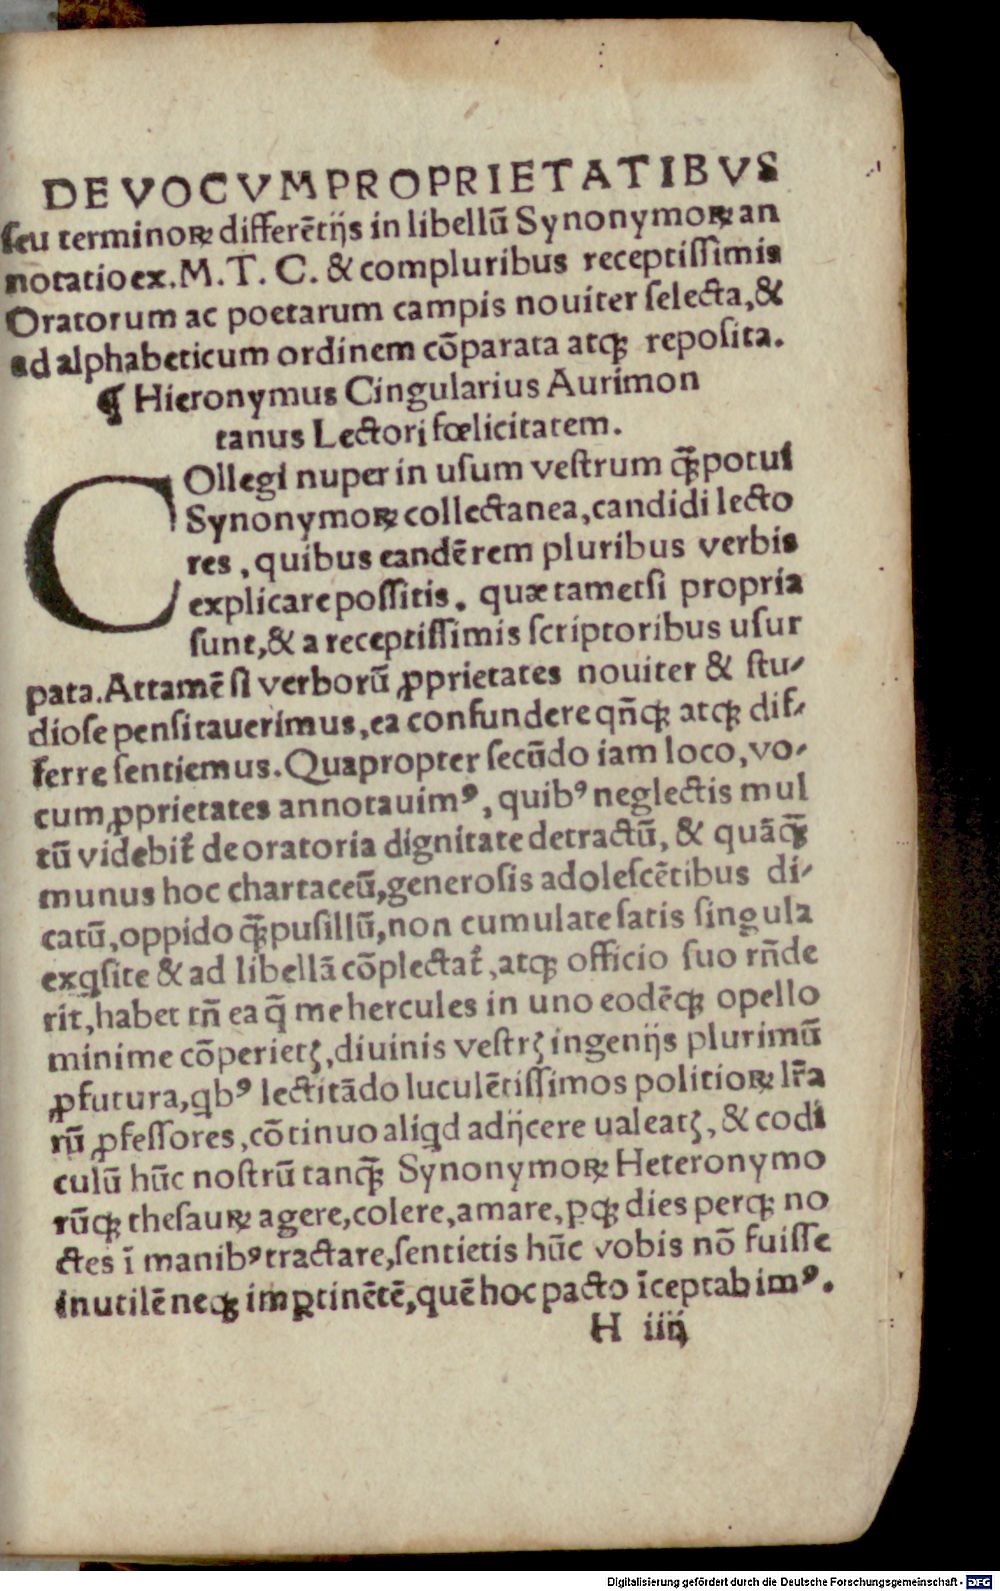 DE VOCVM PROPRIETATIBVS
ſeu terminoꝝ differētijs in libellū Synonymoꝝ an
notatio ex. M. T. C. & compluribus receptiſſimis
Oratorum ac poetarum campis nouiter ſelecta, &
ad alphabeticum ordinem cōparata atqꝫ repoſita.
¶ Hieronymus Cingularius Aurimon
tanus Lectori fœlicitatem.
COllegi nuper in uſum veſtrum q̄ꝫ potui
Synonymoꝝ collectanea, candidi lecto
res, quibus eandē rem pluribus verbis
explicare poſſitis. quæ tametſi propria
ſunt, & a receptiſſimis ſcriptoribus uſur
pata. Attamē ſi verborū ꝓprietates nouiter & ſtu⸗
dioſe penſitauerimus, ea confundere qn̄qꝫ atqꝫ dif⸗
ferre ſentiemus. Quapropter ſecūdo iam loco, vo⸗
cum ꝓprietates annotauimꝰ, quibꝰ neglectis mul
tū videbit᷑ de oratoria dignitate detractū, & quāq̄ꝫ
munus hoc chartaceū, generoſis adoleſcētibus di⸗
catū, oppido q̄ꝫ puſillū, non cumulate ſatis ſingula
exqſite & ad libellā cōplectat᷑, atqꝫ officio ſuo rn̄de
rit, habet tn̄ ea q̄ me hercules in uno eodēqꝫ opello
minime cōperietꝭ, diuinis veſtrꝭ ingenijs plurimū
ꝓfutura, qbꝰ lectitādo luculētiſſimos politioꝝ lr̄a
rū ꝓfeſſores, cōtinuo aliqd adijcere ualeatꝭ, & codi
culū hūc noſtrū tanq̄ꝫ Synonymoꝝ Heteronymo
rūqꝫ theſauꝝ agere, colere, amare, ꝑqꝫ dies perqꝫ no
ctes ī manibꝰ tractare, ſentietis hūc vobis nō fuiſſe
inutilē neqꝫ imꝑtinētē, quē hoc pacto īceptabimꝰ.
H iiij
Digitalisierung gefördert durch die Deutsche Forschungsgemeinschaft - DFG